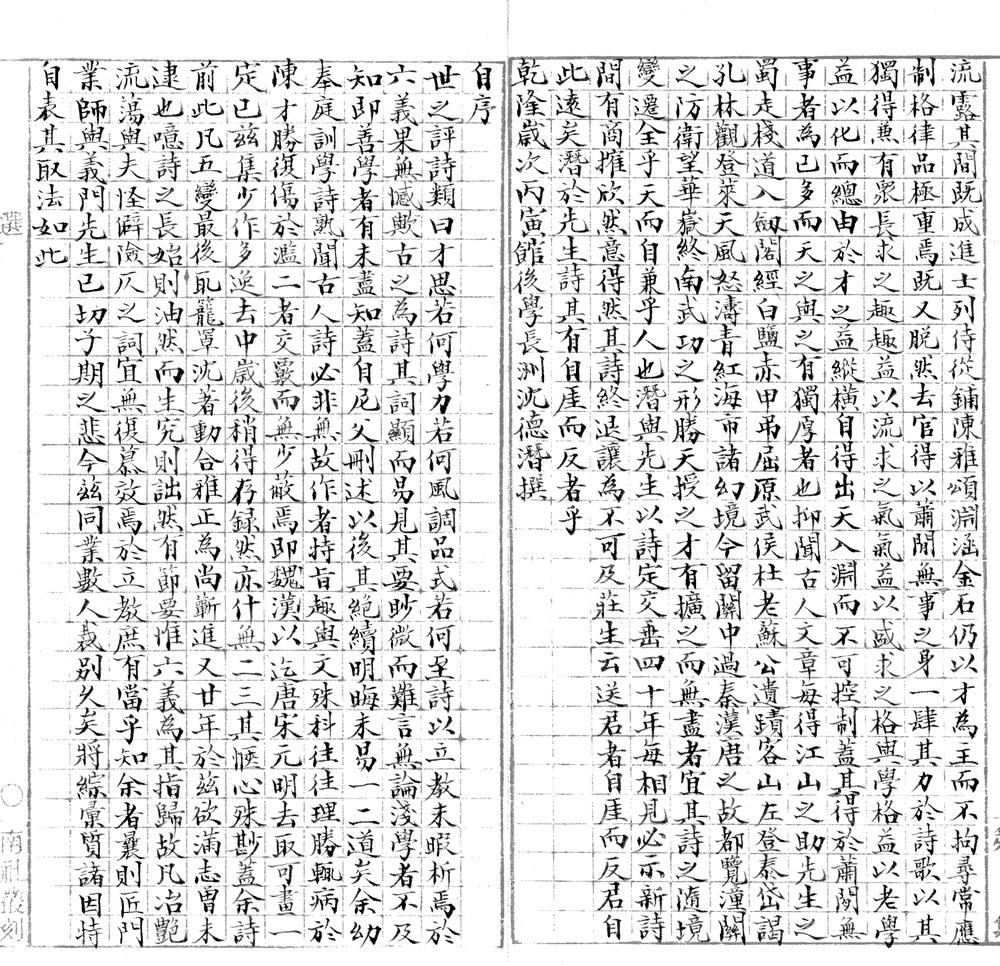 流露其間既成進士列侍從鋪陳雅頌淵涵金石仍以才為主而不拘尋常應
制格律品極重焉既又脫然去官得以蕭閒無事之身一肆其力於詩歌以其
獨得兼有眾長求之趣趣益以流求之氣氣益以盛求之格與學格益以老學
益以化而總由於才之益縱橫自得出天入淵而不可控制蓋其得於蕭閒無
事者為已多而天之與之有獨厚者也抑聞古人文章每得江山之助先生之
蜀走棧道入劒閣經白鹽赤甲弔屈原武侯杜老蘇公遺蹟客山左登泰岱謁
孔林觀登萊天風怒濤青紅海市諸幻境今留關中過秦漢唐之故都覽潼關
之防衛望華嶽終南武功之形勝天授之才有擴之而無盡者宜其詩之隨境
變遷全乎天而自兼乎人也潛與先生以詩定交垂四十年每相見必示新詩
間有商搉欣然意得然其詩終退讓為不可及莊生云送君者自厓而反君自
此遠矣潛於先生詩其有自厓而反者乎
乾隆歲次丙寅館後學長洲沈德潛撰
自序
世之評詩類曰才思若何學力若何風調品式若何至詩以立教未暇析焉於
六義果無憾歟古之為詩其詞顯而易見其要眇微而難言無論淺學者不及
知即善學者有未盡知蓋自尼父刪述以後其絕續明晦未易一二道矣余幼
奉庭訓學詩熟聞古人詩必非無故作者持旨趣與文殊科往往理勝輒病於
陳才勝復傷於濫二者交釁而無少蔽焉即魏漢以迄唐宋元明去取可畫一
定已茲集少作多逸去中歲後稍得存録然亦什無二三其愜心殊尠蓋余詩
前此凡五變最後瓻籠罩沈著動合雅正為尚蘄進又廿年於茲欲滿志曾未
逮也噫詩之長始則油然而生究則詘然有節要惟六義為其指歸故凡冶艷
流蕩與夫怪僻險仄之詞宜無復慕效焉於立教庶有當乎知余者曩則匠門
業師與義門先生已切子期之悲今茲同業數人裁別久矣將綜彙質諸因特
自表其取法如此
選
南祉叢刻
集